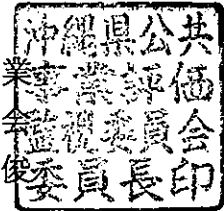 沖縄県公共
事業評価
監視委員会
委員長印
業
会
俊